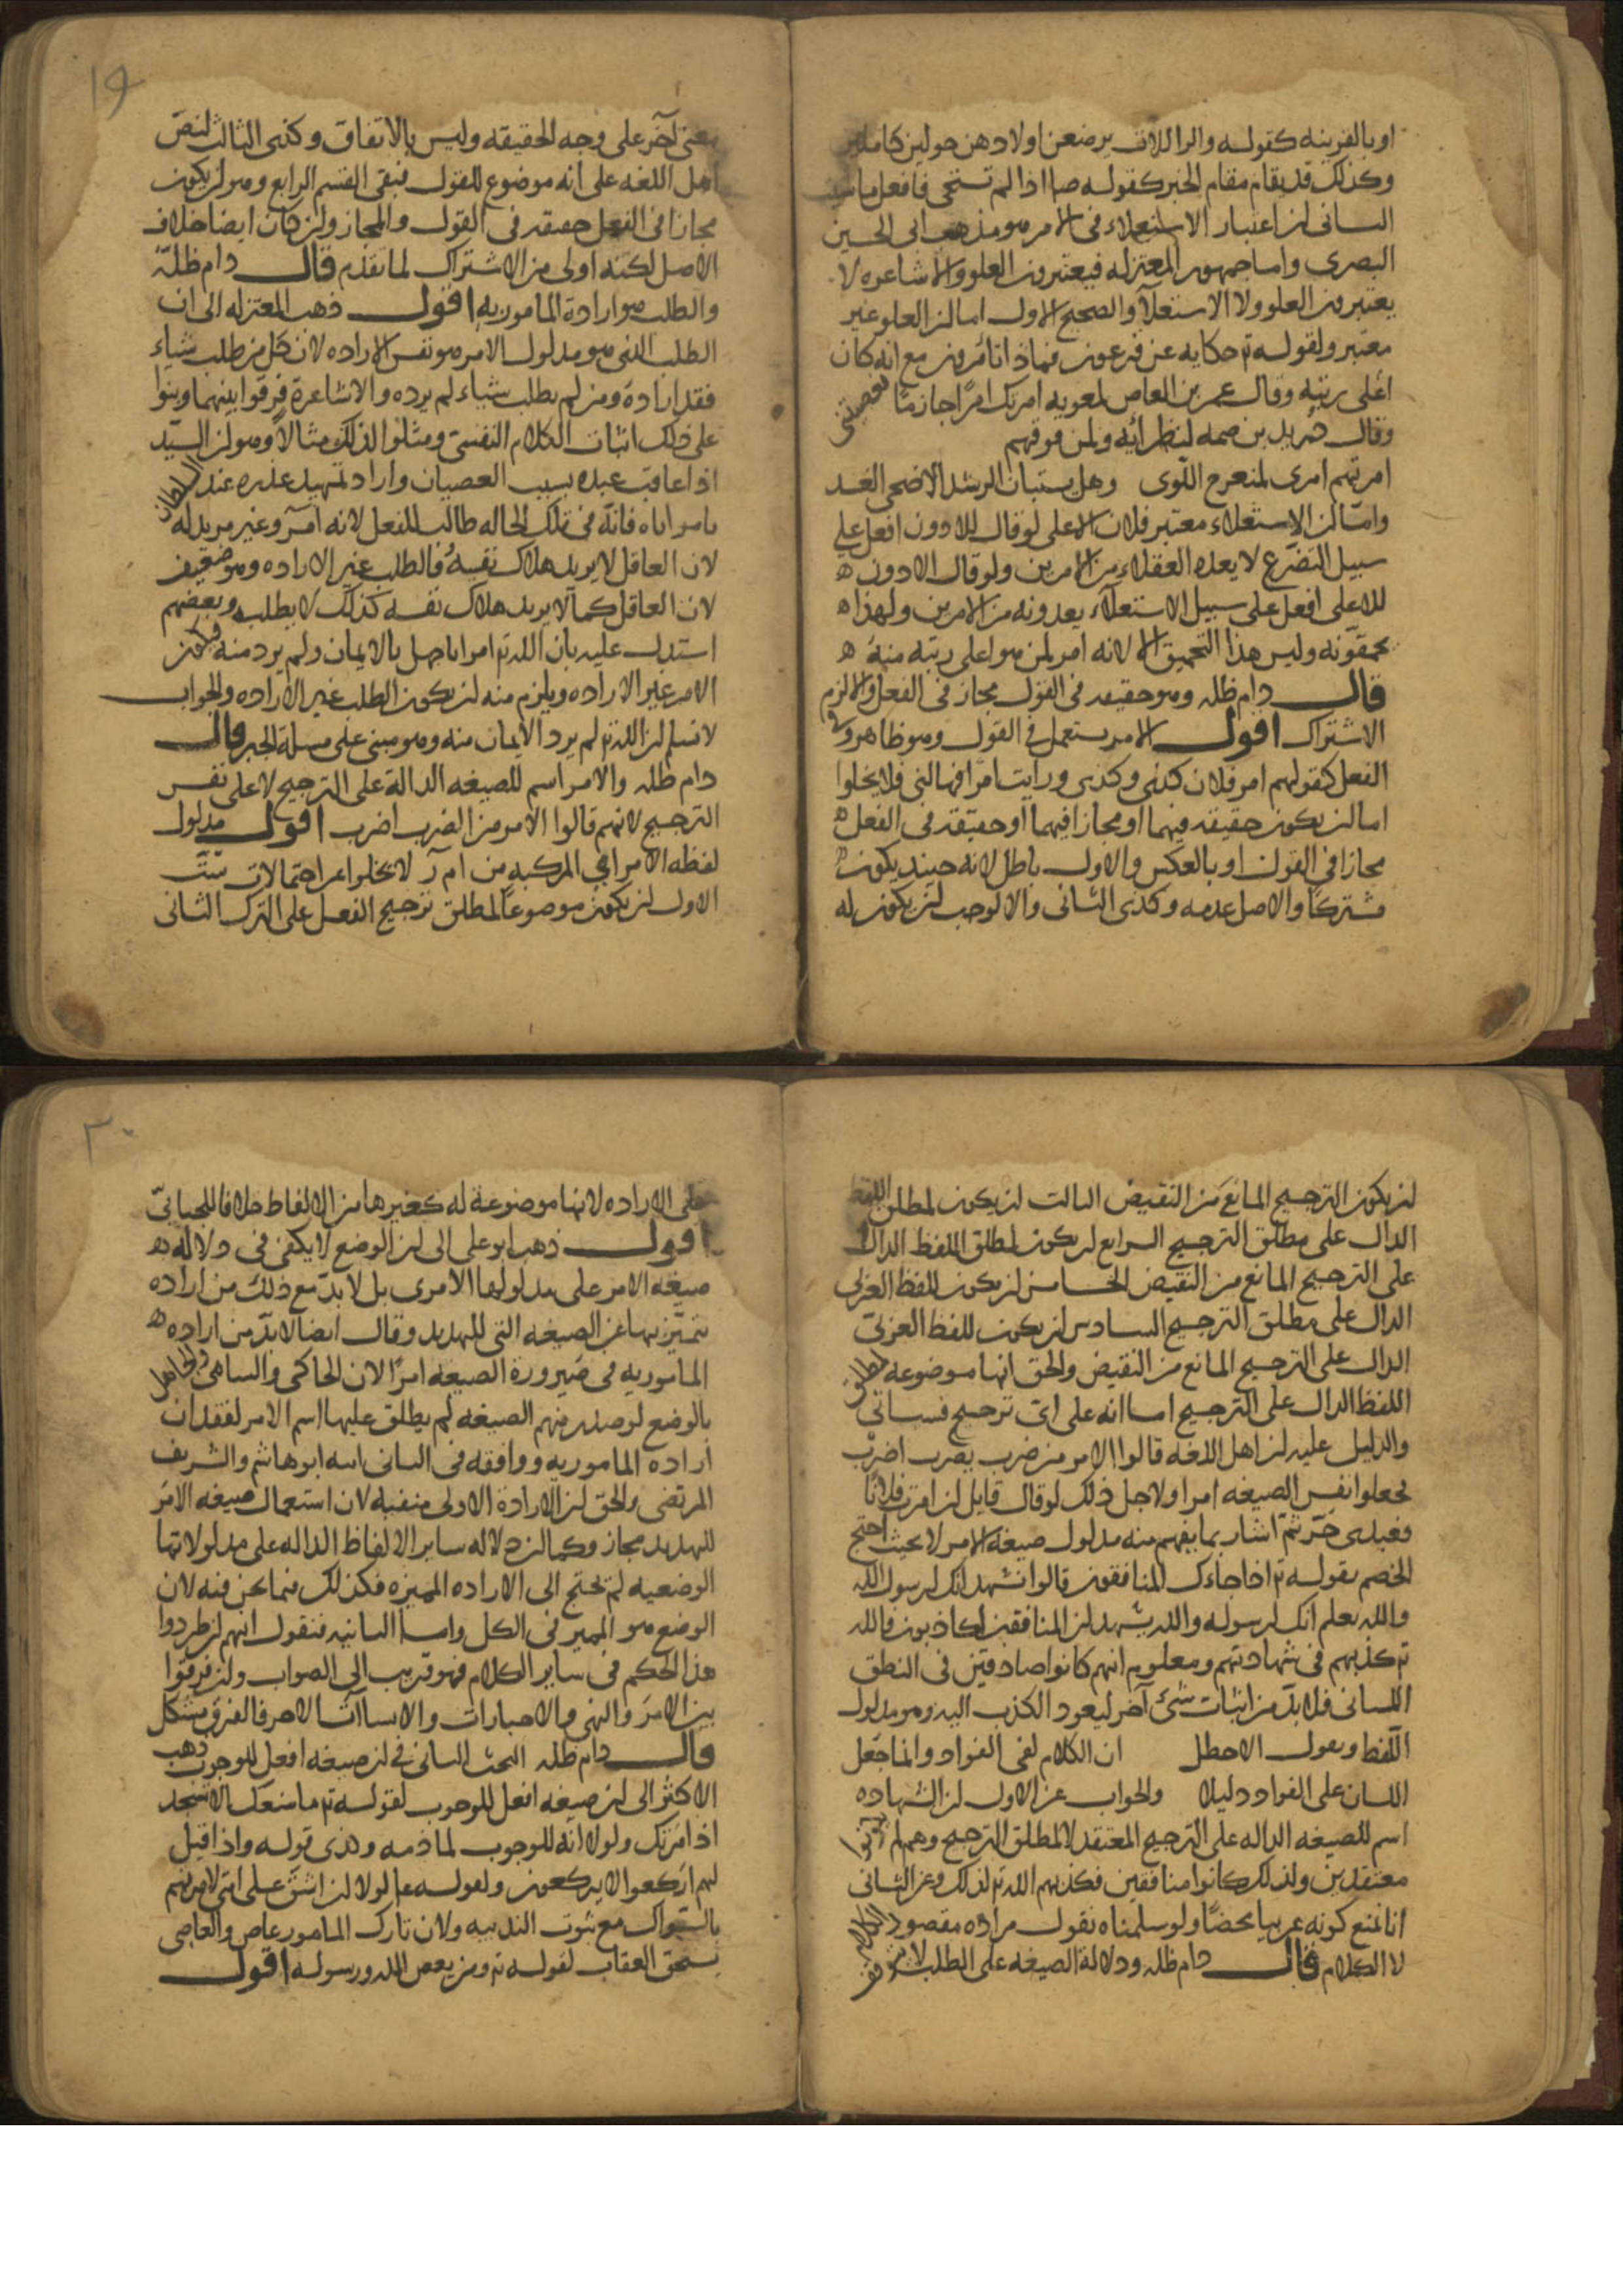 او بالقرينه كقوله والوالدات يرضعن اولادهن حولين كاملين
وكذلك قد يقام مقام الخبر كقوله صا اذا لم تستحى فافعل ما شيت
الثانى ان اعتبار الاستعلاء فى الامر هو مذهب ابى الحسين
البصرى واما جمهور المعتزله فيعتبرون العلو والاشاعره لا
يعتبرون العلو ولا الاستعلآ والصحيح الاول اما ان العلو غير
معتبر ولقوله تع حكايه عن فرعون فماذا تامرون مع انه كان
اعلى رتبه وقال عمر بن العاص لمعويه امرتك امرا جازمًا فعصيتنى
وقال دريد بن صمه لنظرائه ولمن فوقهم
امرتهم امرى لمنعرج اللوى وهل يستبان الرشد الا ضحى الغد
وامّا ان الاستعلاء معتبر فلان الاعلى لو قال للادون افعل على
سبيل التضرّع لا يعده العقلاء من الامرين ولو قال الادون ه
للاعلى افعل على سبيل الاستعلآء يعدونه من الامرين ولهذا ه
يحمقونه وليس هذا التحميق الا لانه امر لمن هو اعلى رتبه منه ه
قال دام ظله وهو حقيقه فى القول مجاز فى الفعل والا لزم
الاشتراك اقول الامر يستعمل فى القول وهو ظاهر وفى
الفعل كقولهم امر فلان كذى وكذى ورايت امرا هالنى فلا يخلوا
اما ان يكون حقيقه فيهما او مجازا فيهما او حقيقه فى الفعل ه
مجازا فى القول او بالعكس والاول باطل لانه حينيد يكون ه
مشتركا والاصل عدمه وكذى الثانى والا لوجب ان يكون له
١٩
معنى آخر على وجه الحقيقه وليس بالاتفاق وكذى الثالث لنصّ
اهل اللغه على انه موضوع للقول فبقى القسم الرابع وهو ان يكون
مجازا فى الفعل حقيقه فى القول والمجاز وان كان ايضا خلاف
الاصل لكنه اولى من الاشتراك لما تقدم قال دام ظله
والطلب هو ارادة المامور به اقول ذهب المعتزله الى ان
الطلب الذى هو مدلول الامر هو نفس الاراده لان كل من طلب شياء
فقد اراده ومن لم يطلب شياء لم يرده والاشاعرة فرقوا بينهما وبنوا
على ذلك اثبات الكلام النفسى ومثلوا لذلك مثالا وهو ان السيّد
اذا عاقب عبده بسبب العصيان واراد تمهيد عذره عند السلطان
بامره اياه فانّه فى تلك الحاله طالب للفعل لانه آمر وغير مريد له
لان العاقل لا يريد هلاك نفسهُ فالطلب غير الاراده وهو ضعيف
لان العاقل كما لا يريد هلاك نفسه كذلك لا يطلبه وبعضهم
استدل عليه بان الله تع امر اباجهل بالايمان ولم يرد منه فيكون
الامر غير الاراده ويلزم منه ان يكون الطلب غير الاراده والجواب
لا نسلم ان الله تع لم يرد الايمان منه وهو مبنى على مسلة الجبر قال
دام ظله والامر اسم للصيغه الدالة على الترجيح لا على نفس
الترجيح لانهم قالوا الامر من الضرب اضرب اقول مدلول
لفظه الامر اعنى المركبه من ام ر لا يخلوا عن احتمالات ستّ
الاول ان يكون موضوعا لمطلق ترجيح الفعل على الترك الثانى
ان يكون الترجيح المانع من النقيض الثالث ان يكون لمطلق اللفظ
الدال على مطلق الترجيح الرابع ان يكون لمطلق اللفظ الدال
على الترجيح المانع من النقيض الخامس ان يكون للفظ العربى
الدال على مطلق الترجيح السادس ان يكون للفظ العربى
الدال على الترجيح المانع من النقيض والحق انها موضوعه لمطلق
اللفظ الدال على الترجيح اما انه على اى ترجيح فسياتى
والدليل عليه ان اهل اللغه قالوا الامر من ضرب يضرب اضرب
فجعلوا نفس الصيغه امرا ولاجل ذلك لو قال قايل ان امرت فلانًا
فعبدى حرّ ثم اشار بما يفهم منه مدلول صيغة الامر لا يحنث احتج
الخصم بقوله تع اذا جاءك المنافقون قالوا نشهد انك لرسول الله
والله يعلم انك لرسوله والله يشهد ان المنافقين لكاذبون فالله
تع كذبهم فى شهادتهم ومعلوم انهم كانوا صادقين فى النطق
اللسانى فلا بدّ من اثبات شئ آخر ليعود الكذب اليه وهو مدلول
اللفظ وبقول الاخطل ان الكلام لفى الفؤاد وانما جعل
اللسان على الفواد دليلا والجواب عن الاول ان الشهاده
اسم للصيغه الداله على الترجيح المعتقد لا لمطلق الترجيح وهم لم يكونوا
معتقدين ولذلك كانوا منافقين فكذبهم الله تع لذلك وعن الثانى
انا نمنع كونه عربيا محضًا ولو سلمناه نقول مراده مقصود الكلام
لا الكلام قال دام ظله ودلالة الصيغه على الطلب لا يتوقف
٢٠
على الاراده لانها موضوعة له كغيرها من الالفاظ خلافا للجبائىّ
اقول ذهب ابو على الى ان الوضع لا يكفى فى دلاله ه
صيغه الامر على مدلولها الامرى بل لا بدّ مع ذلك من اراده
تتميّز بها عن الصيغه التى للتهديد وقال ايضا لا بدّ من اراده ه
المامور به فى صيرورة الصيغه امرًا لان الحاكى والساهى والجاهل
بالوضع لو صدر منهم الصيغه لم يطلق عليها اسم الامر لفقدان
ارادة المامور به ووافقه فى الثانى ابنه ابو هاشم والشريف
المرتضى والحق ان الارادة الاولى منفية لان استعمال صيغه الامر
للتهديد مجاز وكما ان دلاله ساير الالفاظ الداله على مدلولاتها
الوضعيه لم تحتج الى الاراده المميزه فكذلك فيما نحن فيه لان
الوضع هو المميز فى الكل واما الثانيه فنقول انهم ان طردوا
هذا الحكم فى ساير الكلام فهو قريب الى الصواب وان فرقوا
بين الامر والنهى والاخبارات والانشاآت الاخر فالفرق مشكل
قال دام ظله البحث الثانى فى ان صيغه افعل للوجوب ذهب
الاكثر الى ان صيغه افعل للوجوب لقوله تع ما منعك الا تسجد
اذ امرتك ولولا انه للوجوب لما ذمه وكذى قوله واذا قيل
لهم اركعوا لا يركعون ولقوله عا لولا ان اشق على امتى لامرتهم
بالسواك مع ثبوت الندبيه ولان تارك المامور عاص والعاصى
يستحق العقاب لقوله تع ومن يعص الله ورسوله اقول